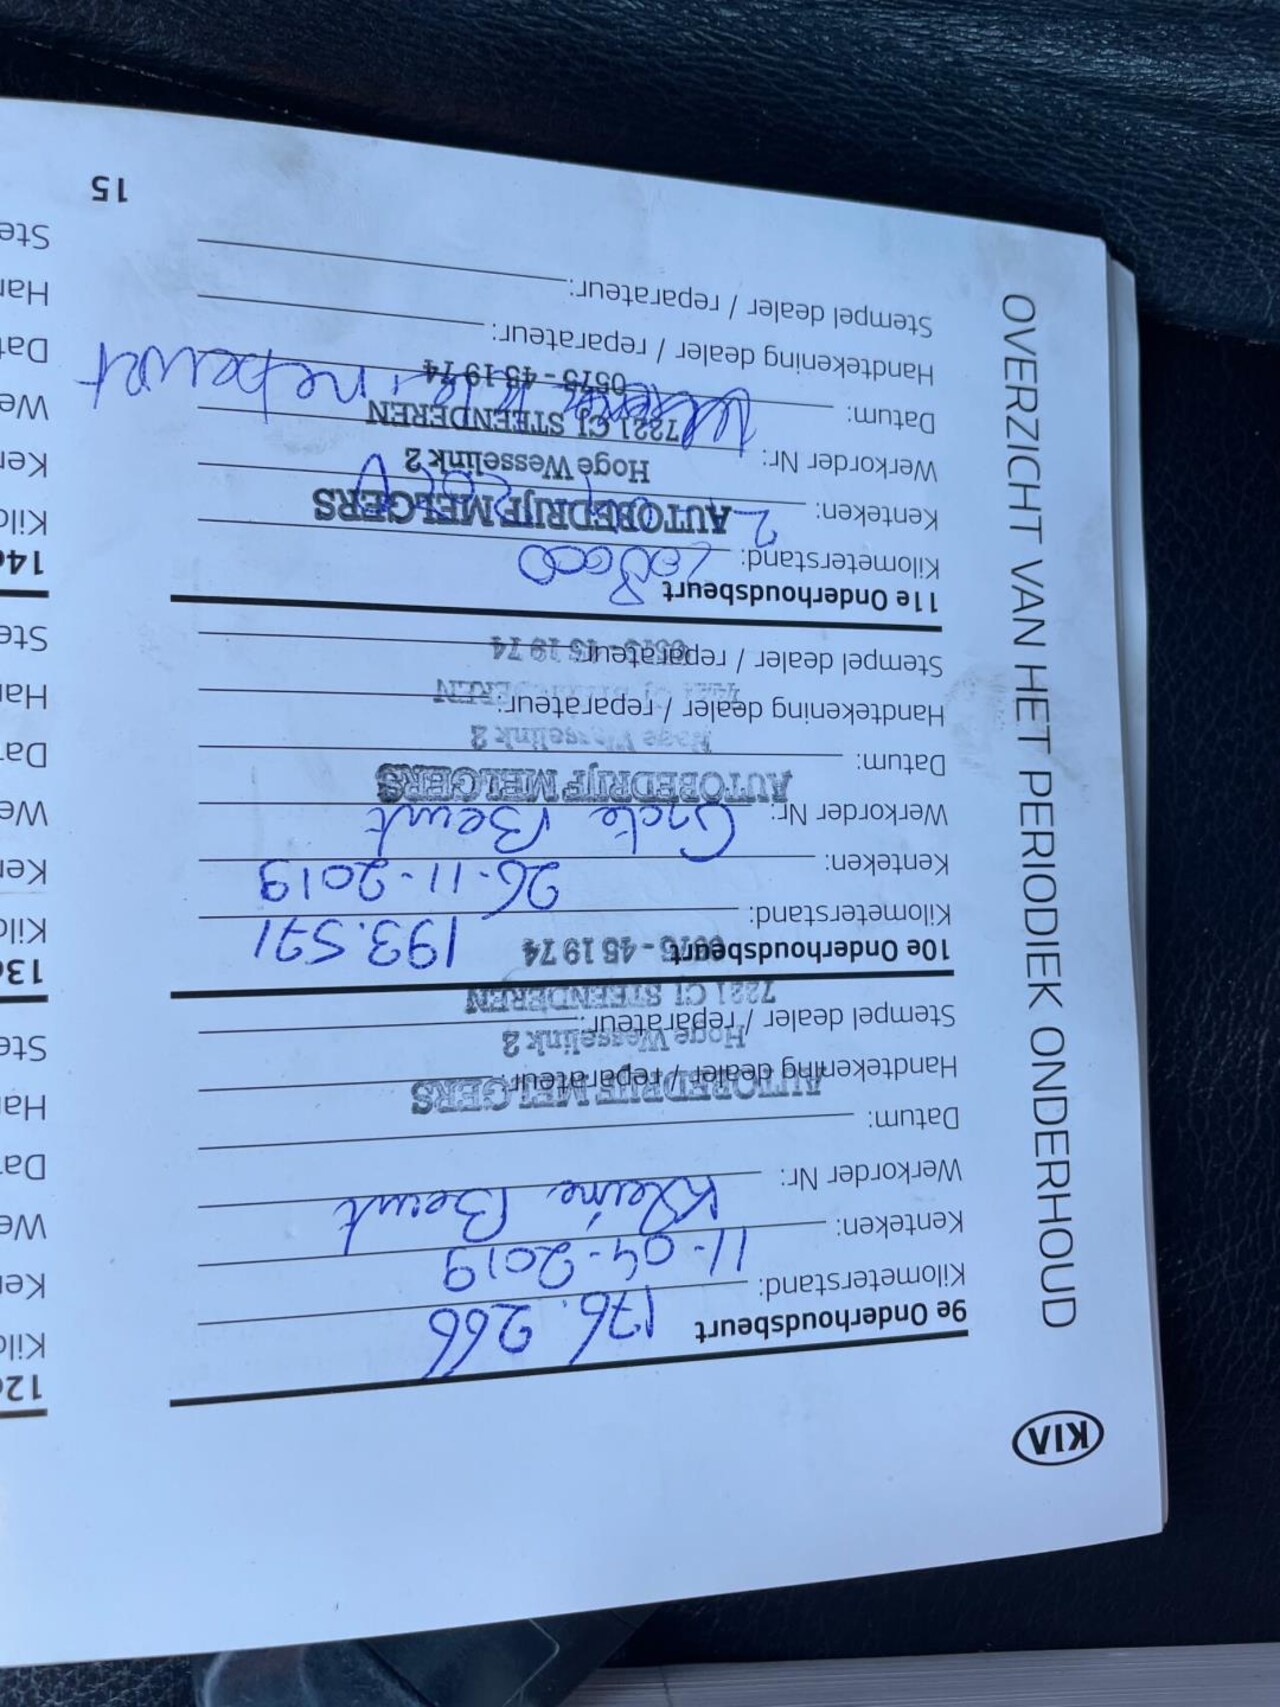 KIA
OVERZICHT VAN HET PERIODIEK ONDERHOUD
9e Onderhoudsbeurt
Kilometerstand: 176.266
Kenteken: 11-04-2019
Werkorder Nr: Kleine Beurt
Datum:
Handtekening dealer / reparateur:
AUTOBEDRIJF MELGERS
Stempel dealer / reparateur:
Hoge Wesselink 2
7221 CJ STEENDEREN
0575 - 45 19 74
10e Onderhoudsbeurt
Kilometerstand: 193.571
Kenteken: 26-11-2019
Werkorder Nr: Grote Beurt
AUTOBEDRIJF MELGERS
Datum:
Hoge Wesselink 2
Handtekening dealer / reparateur:
7221 CJ STEENDEREN
Stempel dealer / reparateur:
0575 - 45 19 74
11e Onderhoudsbeurt
Kilometerstand:
Kenteken:
AUTOBEDRIJF MELGERS
Werkorder Nr:
Hoge Wesselink 2
Datum:
7221 CJ STEENDEREN
Handtekening dealer / reparateur:
0575 - 45 19 74
Stempel dealer / reparateur:
15
12e
Kilo
Ken
We
Dat
Han
Ste
13e
Kilo
Ken
We
Dat
Han
Ste
14e
Kilo
Ken
We
Dat
Han
Ste